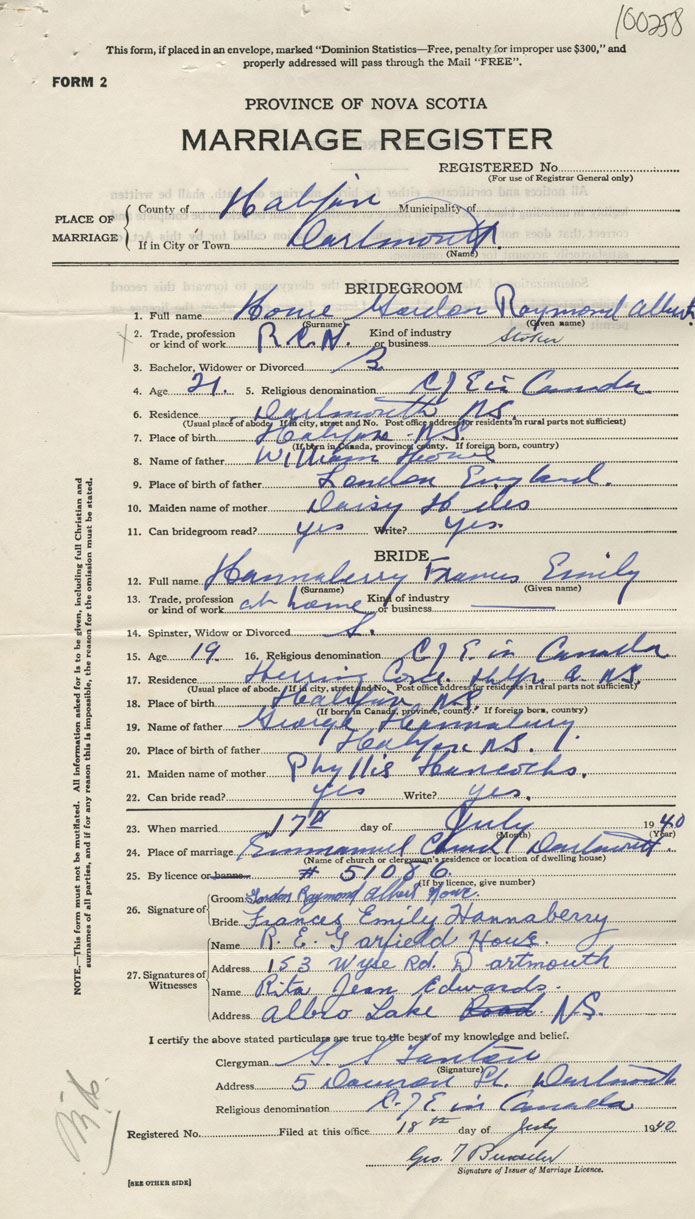 100258
This form, if placed in an envelope, marked "Dominion Statistics—Free, penalty for improper use $300," and
properly addressed will pass through the Mail "FREE".
FORM 2
PROVINCE OF NOVA SCOTIA
MARRIAGE REGISTER
REGISTERED No.
(For use of Registrar General only)
PLACE OF MARRIAGE
County of Halifax Municipality of
If in City or Town Dartmouth
(Name)
BRIDEGROOM
1. Full name Howe Gordon Raymond Albert
(Surname) (Given name)
2. Trade, profession or kind of work R.C.N. Kind of industry or business Stoker
3. Bachelor, Widower or Divorced B
4. Age 21. 5. Religious denomination C of E in Canada
6. Residence Dartmouth N.S.
(Usual place of abode. If in city, street and No. Post office address for residents in rural parts not sufficient)
7. Place of birth Halifax N.S.
(If born in Canada, province, county. If foreign born, country)
8. Name of father William Howe
9. Place of birth of father London England.
10. Maiden name of mother Daisy
11. Can bridegroom read? yes Write? yes.
BRIDE
12. Full name Hannaberry Frances Emily
(Surname) (Given name)
13. Trade, profession or kind of work at home Kind of industry or business
14. Spinster, Widow or Divorced S.
15. Age 19 16. Religious denomination C of E. in Canada
17. Residence Herring Cove Halfx Co N.S.
(Usual place of abode. If in city, street and No. Post office address for residents in rural parts not sufficient)
18. Place of birth Halifax N.S.
(If born in Canada, province, county. If foreign born, country)
19. Name of father George Hannaberry.
20. Place of birth of father Halifax N.S.
21. Maiden name of mother Phyllis Hancocks.
22. Can bride read? yes Write? yes.
23. When married 17th day of July 1940
(Month) (Year)
24. Place of marriage Emmanuel Church Dartmouth
(Name of church or clergyman's residence or location of dwelling house)
25. By licence or banns # 51086.
(If by licence, give number)
26. Signature of
Groom Gordon Raymond Albert Howe.
Bride Frances Emily Hannaberry
27. Signatures of Witnesses
Name R. E. Garfield House.
Address 153 Wyse Rd. Dartmouth
Name Rita Jean Edwards.
Address Albro Lake Road N.S.
I certify the above stated particulars are true to the best of my knowledge and belief.
Clergyman G. S
(Signature)
Address 5 Dawson St. Dartmouth
Religious denomination C. of E. in Canada
Registered No. Filed at this office 18th day of July 1940
Geo. T
Signature of Issuer of Marriage Licence.
[SEE OTHER SIDE]
NOTE.—This form must not be mutilated. All information asked for is to be given, including full Christian and
surnames of all parties, and if for any reason this is impossible, the reason for the omission must be stated.